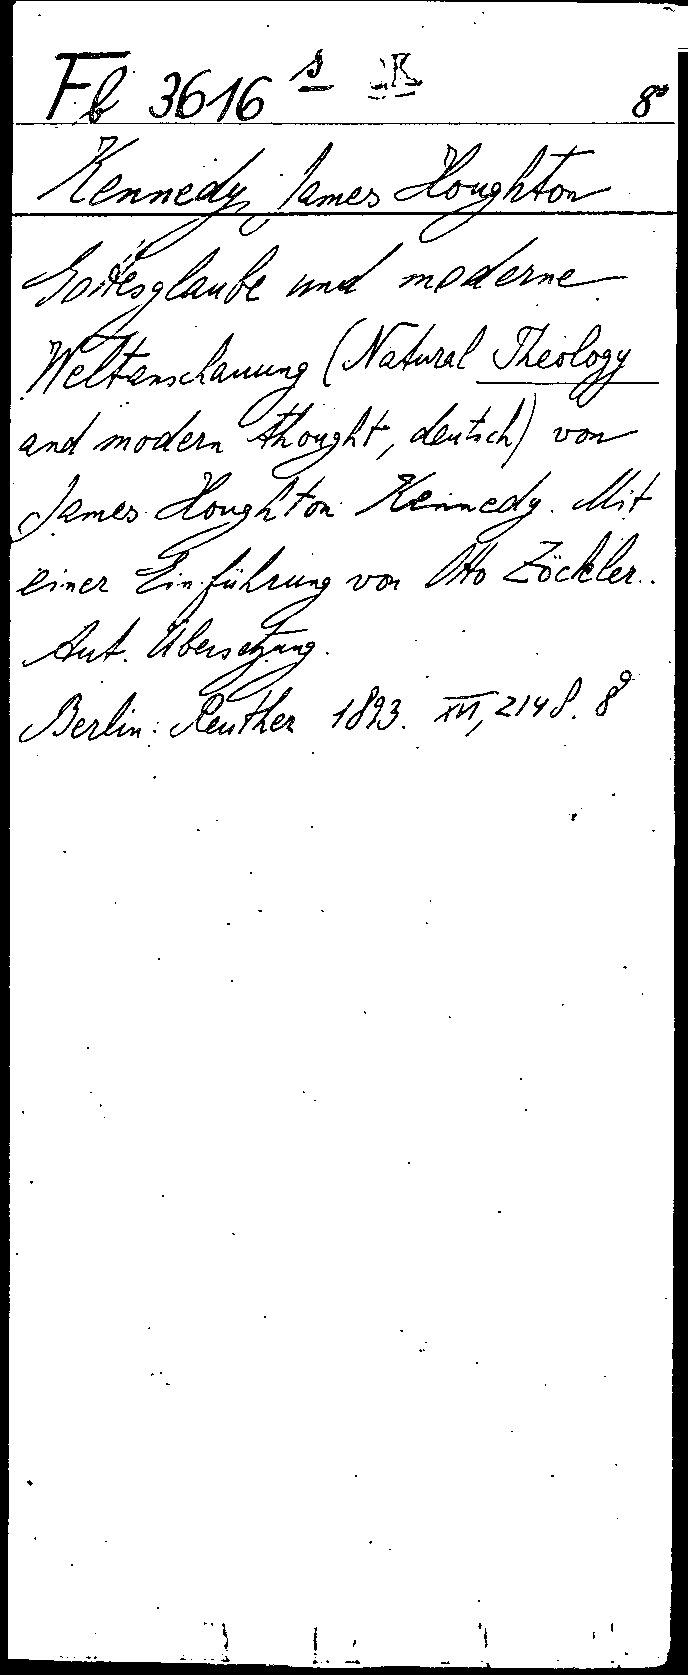 Fb 3616 s 8°
Kennedy, James Houghton
Gottesglaube und moderne
Weltanschauung (Natural Theology
and modern thought, deutsch) von
James Houghton Kennedy. Mit
einer Einführung von Otto Zöckler.
Aut. Übersetzung.
Berlin: Reuther 1893. 214 S. 8°